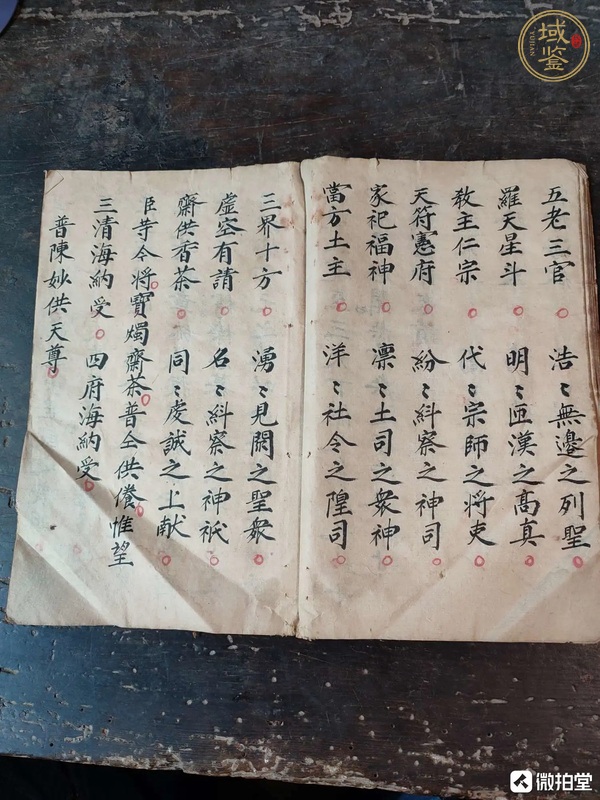 五老三官 浩〻無邊之列聖
羅天星斗 明〻匝漢之高真
教主仁宗 代〻宗師之将吏
天符憲府 紛〻糾察之神司
家祀福神 凛〻土司之衆神
當方土主 洋〻社令之隍司
三界十方 湧〻見聞之聖衆
虚空有請 名〻糾察之神祇
齋供香茶 同〻虔誠之上献
臣等令将寶燭齋茶普仝供養惟望
三清海納受 四府海納受
普陳妙供天尊
域鉴
YUJIAN
微拍堂